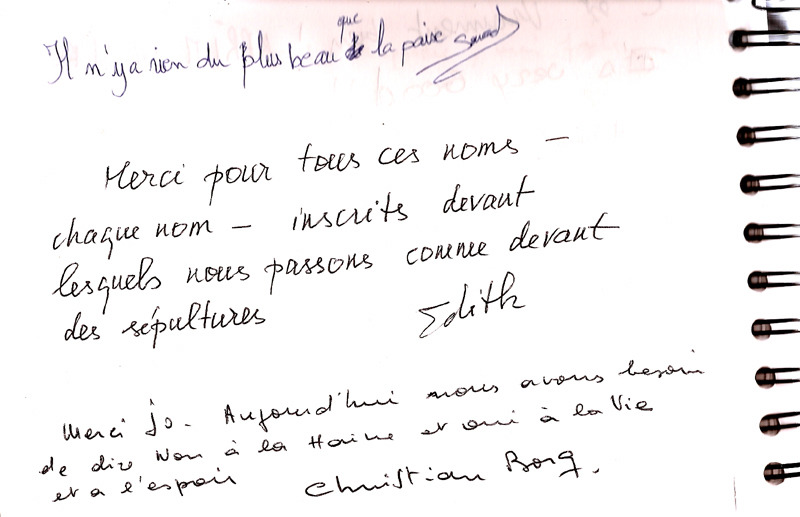 Il n'y a rien du plus beau que la paix
Merci pour tous ces noms –
chaque nom – inscrits devant
lesquels nous passons comme devant
des sépultures
Edith
Merci Jo. Aujourd'hui nous avons besoin
de dire Non à la Haine et oui à la Vie
et a l'espoir
Christian Borg.